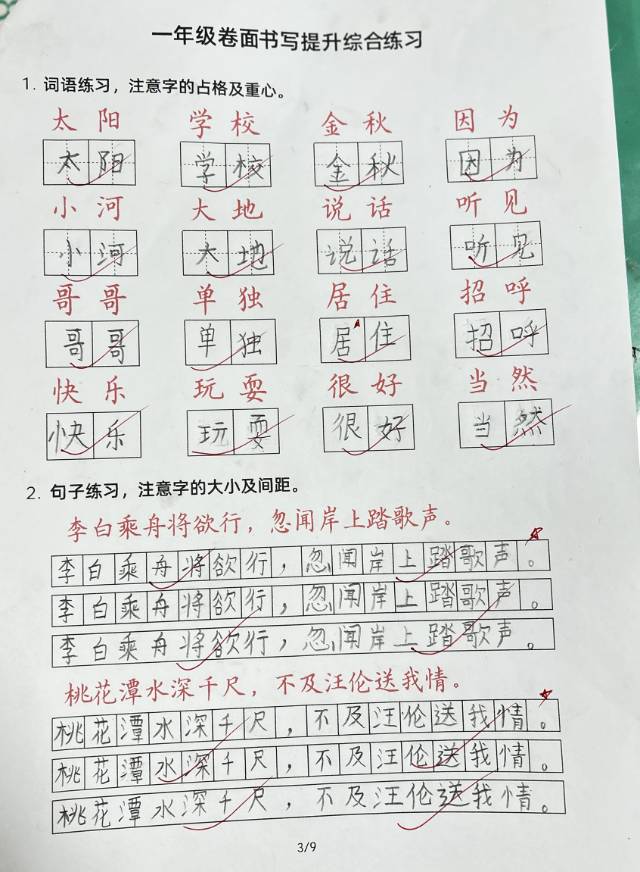 一年级卷面书写提升综合练习
1. 词语练习，注意字的占格及重心。
太阳 学校 金秋 因为
太阳 学校 金秋 因为
小河 大地 说话 听见
小河 大地 说话 听见
哥哥 单独 居住 招呼
哥哥 单独 居住 招呼
快乐 玩耍 很好 当然
快乐 玩耍 很好 当然
2. 句子练习，注意字的大小及间距。
李白乘舟将欲行，忽闻岸上踏歌声。
李白乘舟将欲行，忽闻岸上踏歌声。
李白乘舟将欲行，忽闻岸上踏歌声。
李白乘舟将欲行，忽闻岸上踏歌声。
桃花潭水深千尺，不及汪伦送我情。
桃花潭水深千尺，不及汪伦送我情。
桃花潭水深千尺，不及汪伦送我情。
桃花潭水深千尺，不及汪伦送我情。
3/9